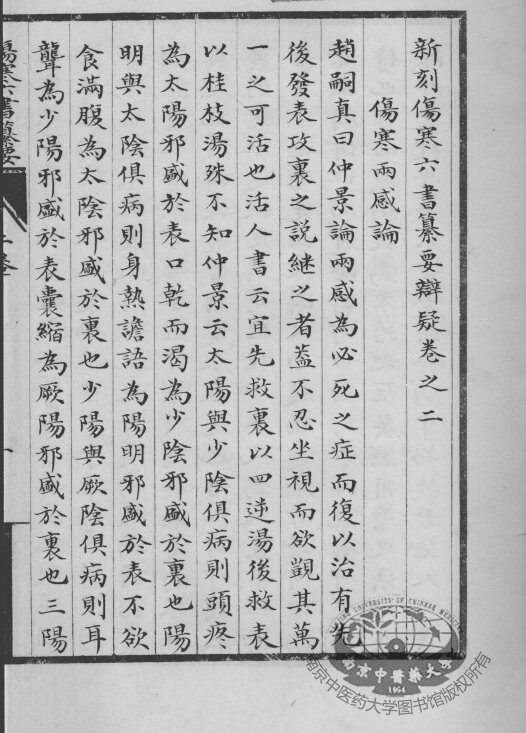 新刻傷寒六書纂要辯疑卷之二
傷寒兩感論
趙嗣真曰仲景論兩感為必死之症而復以治有先
後發表攻裏之說継之者葢不忍坐視而欲覬其萬
一之可活也活人書云宜先救裏以四逆湯後救表
以桂枝湯殊不知仲景云太陽與少陰俱病則頭疼
為太陽邪盛於表口乾而渴為少陰邪盛於裏也陽
明與太陰俱病則身熱譫語為陽明邪盛於表不欲
食滿腹為太陰邪盛於裏也少陽與厥陰俱病則耳
聾為少陽邪盛於表囊縮為厥陽邪盛於裏也三陽
傷寒六書纂要
二卷
一
UNIVERSITY OF CHINESE MEDICINE
南京中醫藥大學
1954
南京中医药大学图书馆版权所有